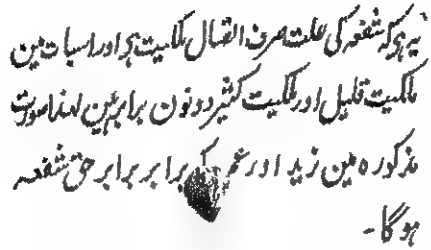 یہ ہر کہ شفعہ کی علت صرف اتصال ملکیت ہر اور اسبات مین
ملکیت قلیل اور ملکیت کثیر دونون برابر ہین لہذا صورت
مذکورہ مین زید اور عمر کو برابر برابر حق شفعہ
ہوگا۔